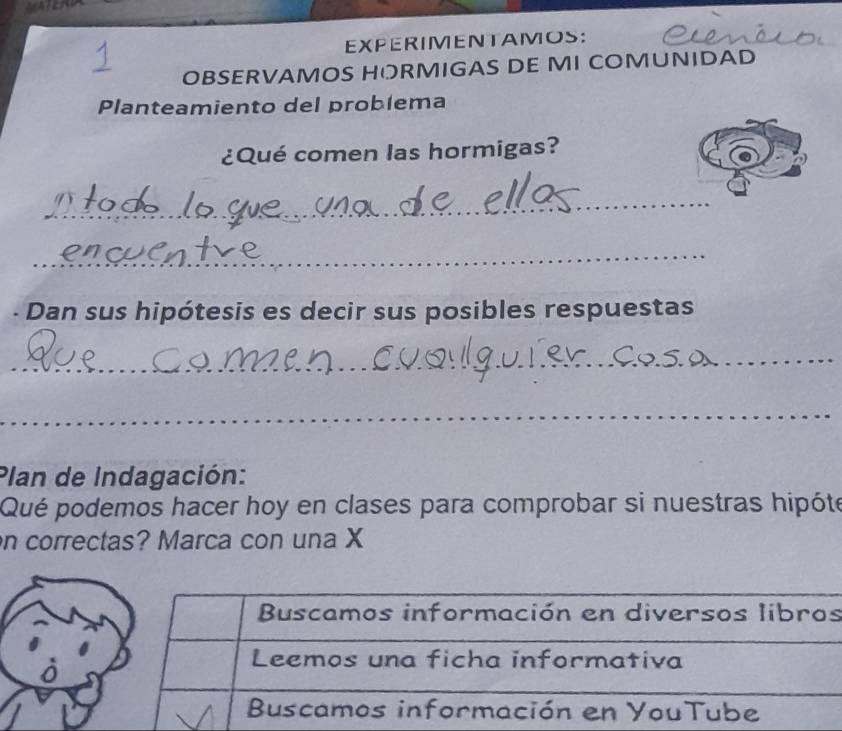 MATERIA
1
EXPERIMENTAMOS: ciencia
OBSERVAMOS HORMIGAS DE MI COMUNIDAD
Planteamiento del problema
¿Qué comen las hormigas?
todo lo que una de ellas
encuentre
- Dan sus hipótesis es decir sus posibles respuestas
Que comen cualquier cosa
Plan de Indagación:
Qué podemos hacer hoy en clases para comprobar si nuestras hipóte
on correctas? Marca con una X
Buscamos información en diversos libros
Leemos una ficha informativa
Buscamos información en YouTube